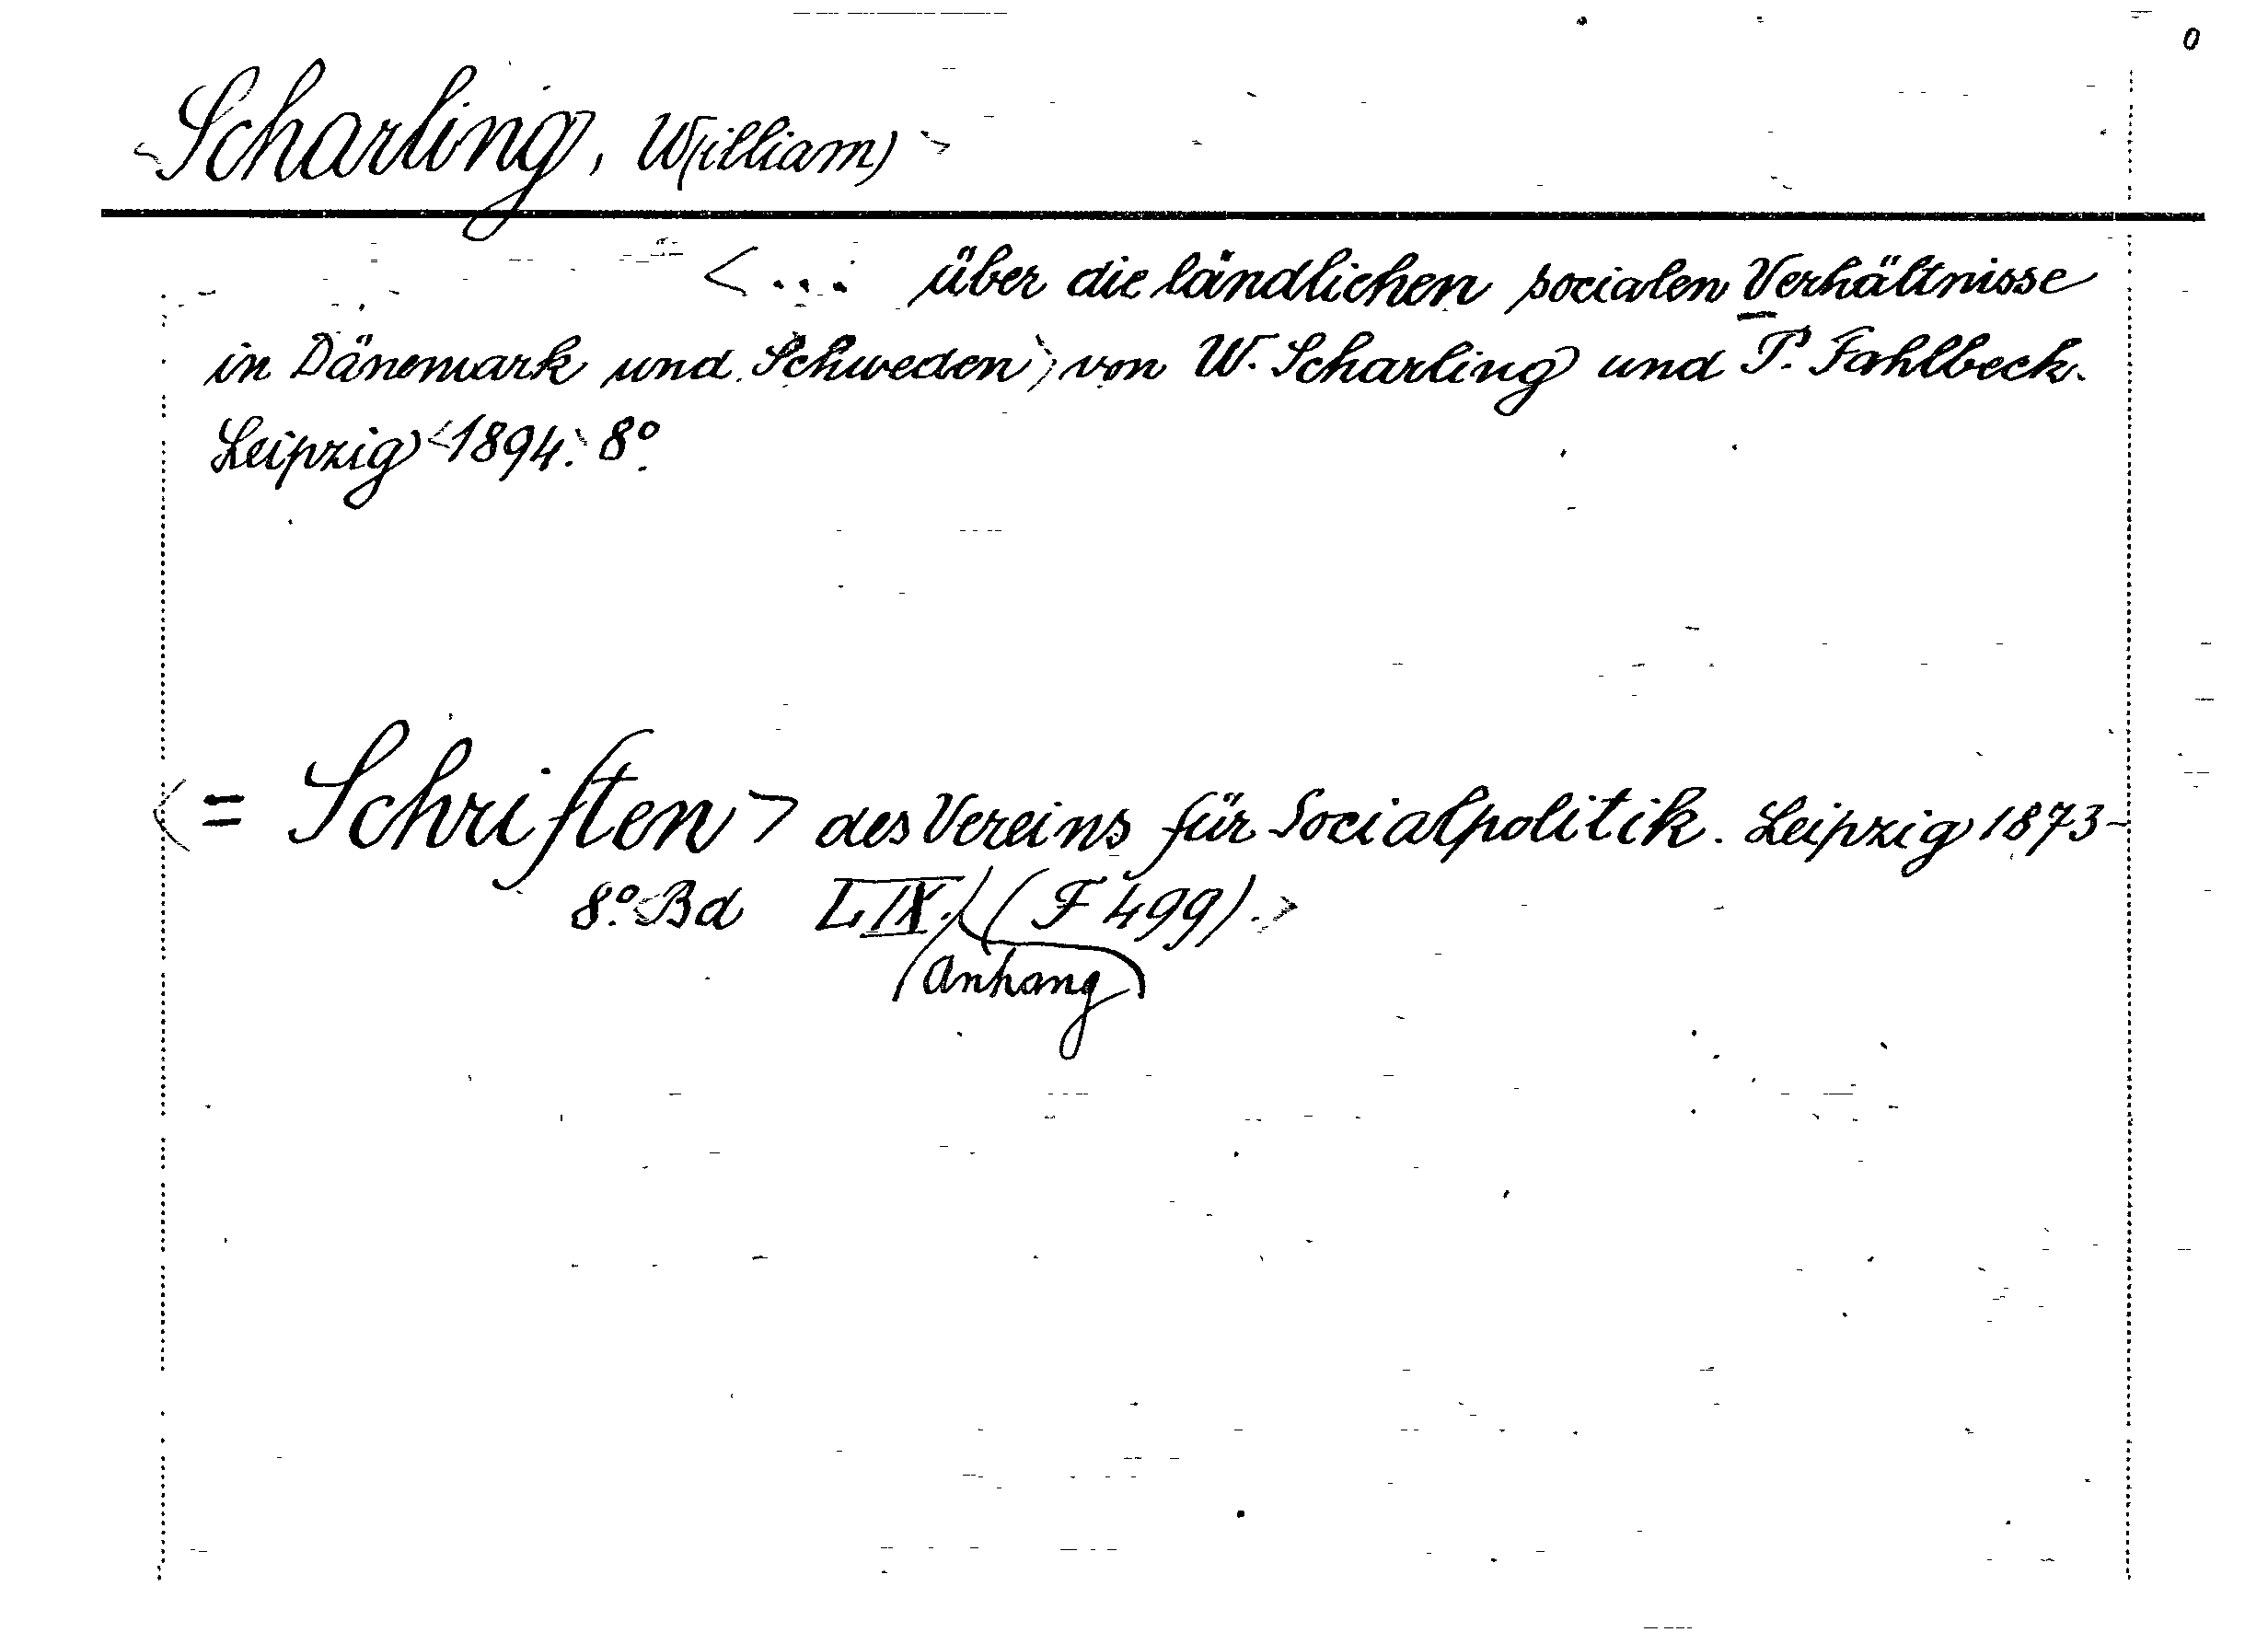 0
<Scharling, W(illiam)>
<... über die ländlichen socialen Verhältnisse
in Dänemark und Schweden> von W. Scharling und P. Fahlbeck.
Leipzig <1894.> 8°.
<= Schriften> des Vereins für Socialpolitik. Leipzig 1873-
8°. <Bd LIX. (F 499).>
(Anhang)